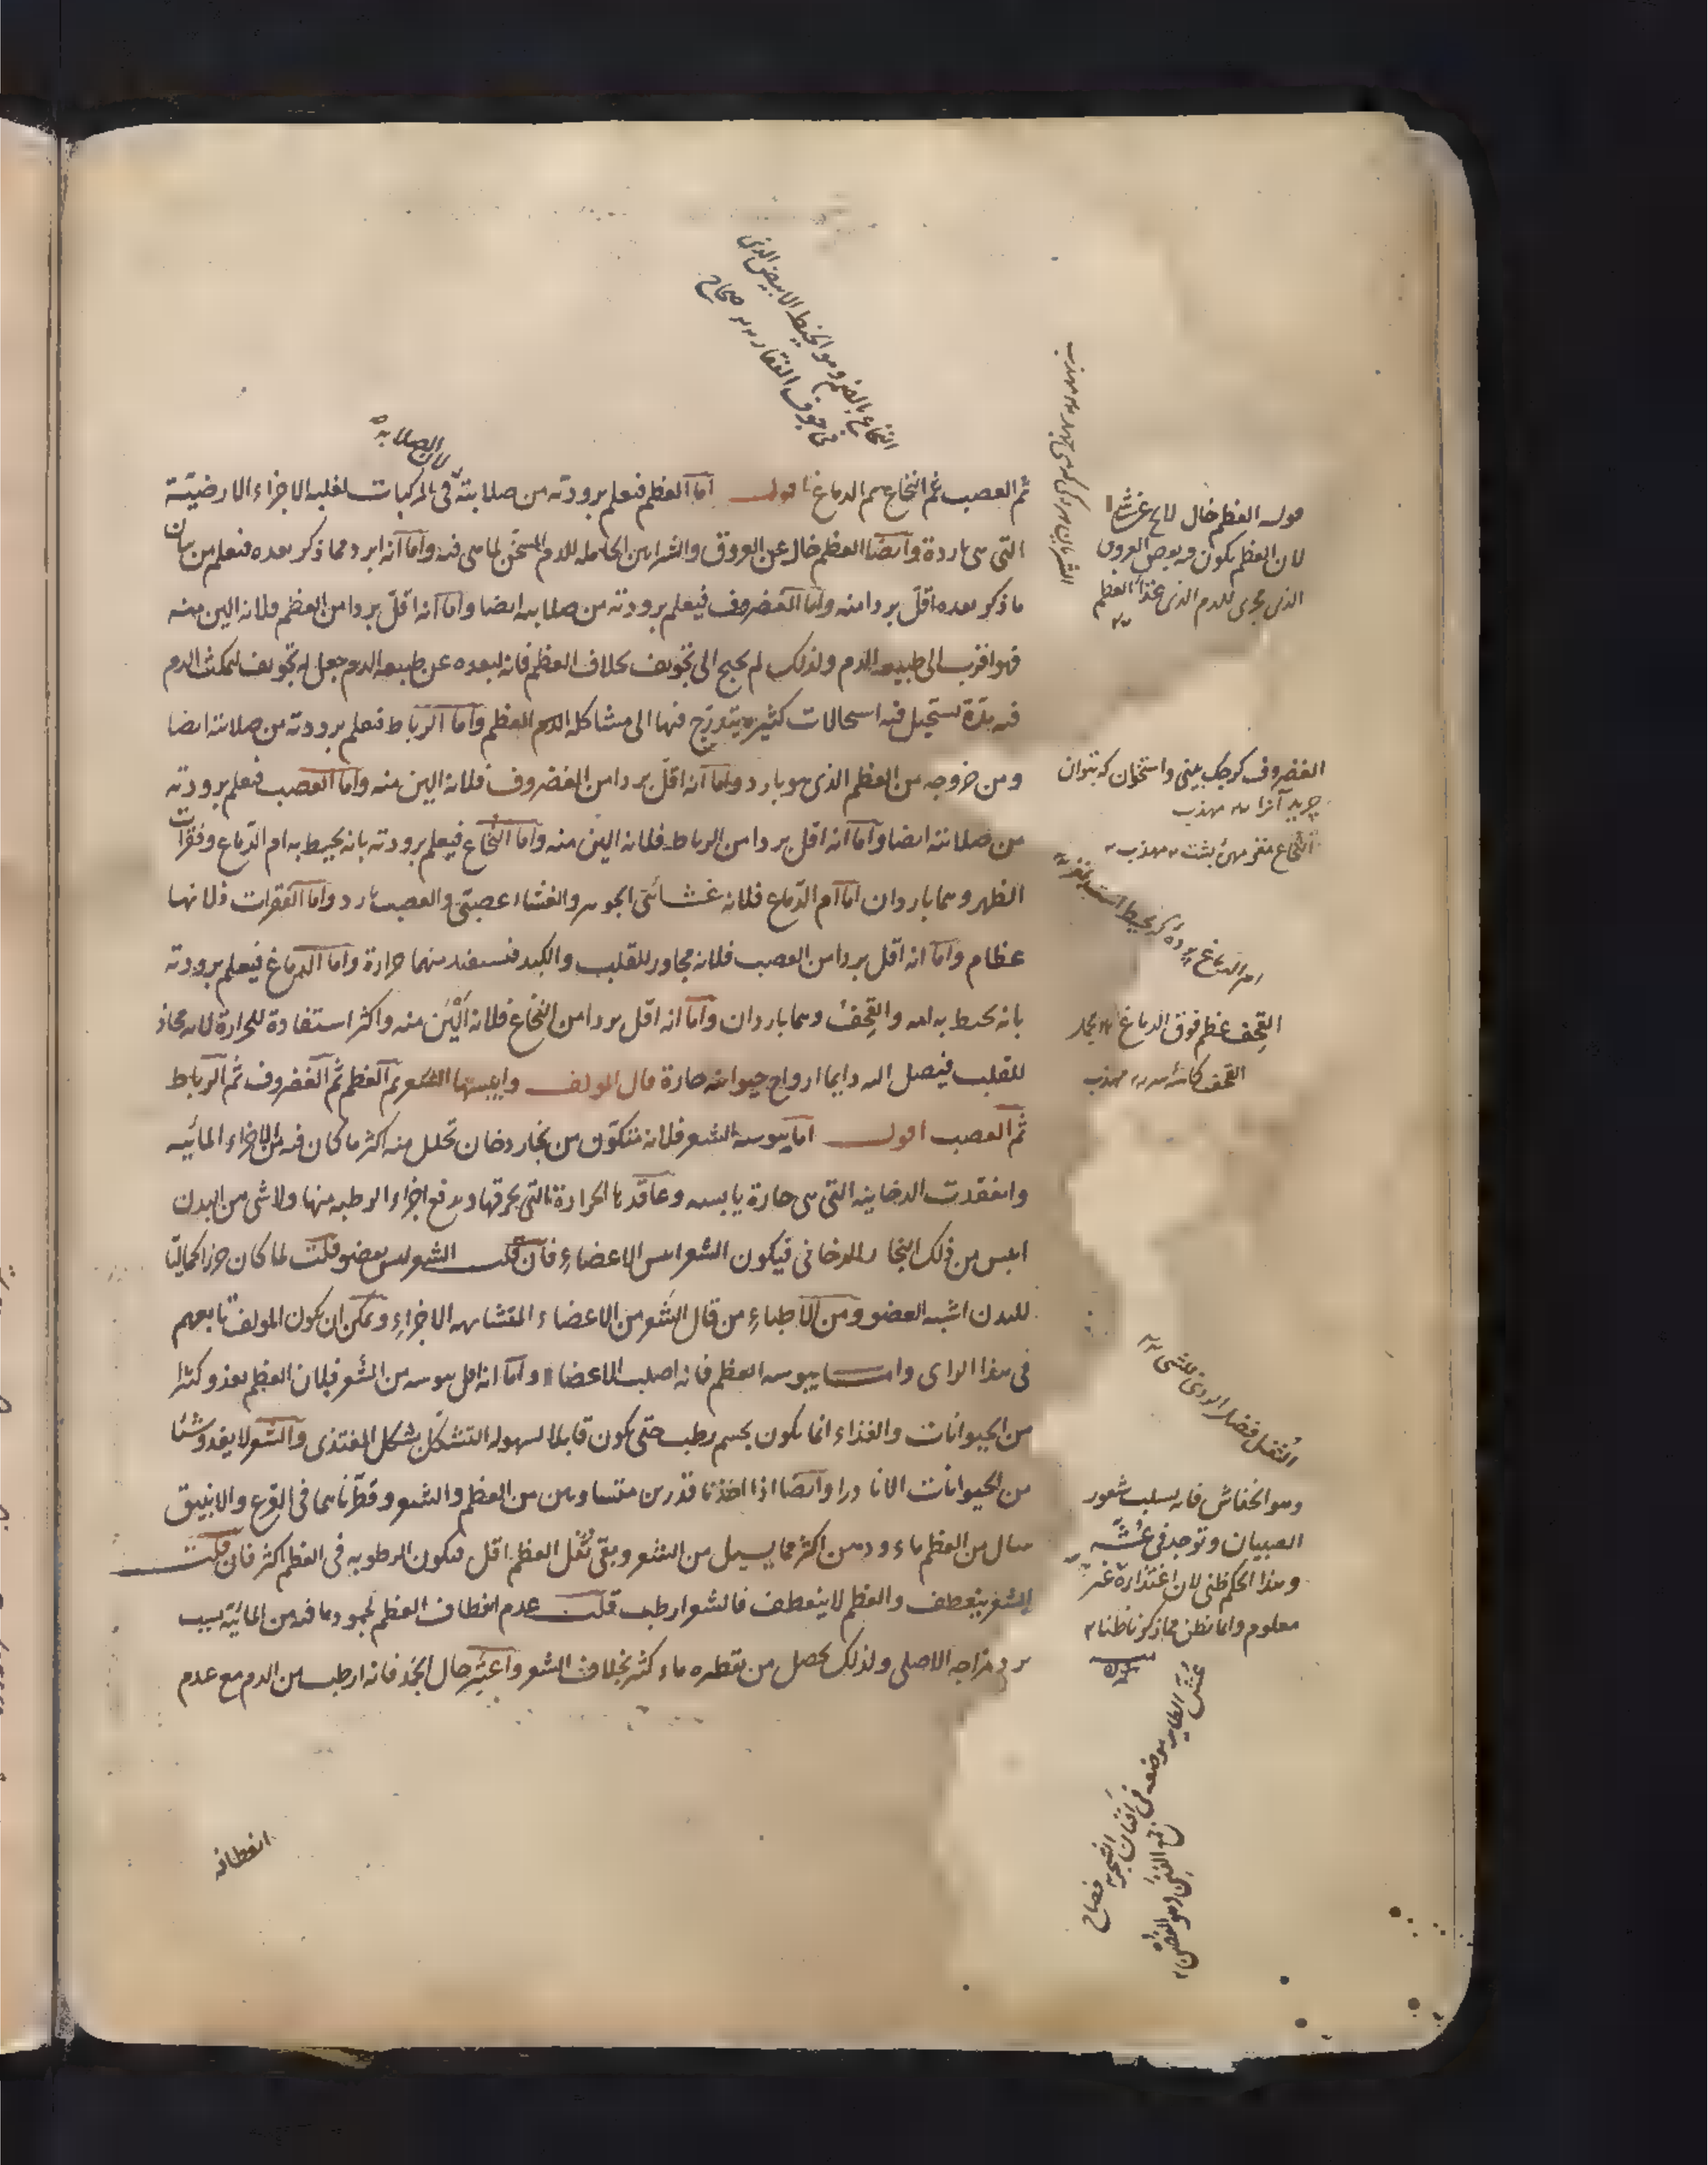 ثم العصب ثم النخاع ثم الدماغ اقول اما العظم فيعلم برودته من صلابته في المركبات لغلبه الاجزاء الارضية
التي هي باردة وايضا العظم خال عن العروق والشرايين الحامله للدم المسخن لما هي فيه واما انه ابرد مما ذكر بعده فيعلم من بيان
ما ذكر بعده اقل بردا منه واما الغضروف فيعلم برودته من صلابته ايضا واما انه اقل بردا من العظم فلانه الين منه
فهو اقرب الى طبيعه الدم ولذلك لم يحتج الى تجويف بخلاف العظم فانه لبعده عن طبيعه الدم جعل له تجويف ليمكث الدم
فيه مدة تستحيل فيه استحالات كثيره يتدرج فيها الى مشاكله الدم العظم واما الرباط فيعلم برودته من صلابته ايضا
ومن خروجه من العظم الذي هو بارد واما انه اقل بردا من الغضروف فلانه الين منه واما العصب فيعلم برودته
من صلابته ايضا واما انه اقل بردا من الرباط فلانه الين منه واما النخاع فيعلم برودته بانه يحيط به ام الدماغ وفقرات
الظهر وهما باردان اما ام الدماغ فلانه غشائي الجوهر والغشاء عصبي والعصب بارد واما الفقرات فلانها
عظام واما انه اقل بردا من العصب فلانه مجاور للقلب والكبد فيستفيد منهما حرارة واما الدماغ فيعلم برودته
بانه يحيط به امه والقحف وهما باردان واما انه اقل بردا من النخاع فلانه الين منه واكثر استفادة للحرارة لانه محاذ
للقلب فيصل اليه دايما ارواح حيوانيه حارة قال المولف وايبسها الشعر ثم العظم ثم الغضروف ثم الرباط
ثم العصب اقول اما يبوسه الشعر فلانه يتكون من بخار دخان تحلل منه اكثر ما كان فيه من الاجزاء المائيه
وانعقدت الدخانيه التي هي حارة يابسه وعاقدها الحرارة التي يحرقها ويدفع اجزاء الرطبه منها ولا شي من البدن
ايبس من ذلك البخار الدخاني فيكون الشعر ايبس الاعضاء فان قلت الشعر ليس بعضو قلت لما كان جزا كماليا
للبدن اشبه العضو ومن الاطباء من قال الشعر من الاعضاء المتشابهه الاجزاء ويمكن ان يكون المولف تابعهم
في هذا الراى واما يبوسه العظم فانه اصلب الاعضاء واما انه اقل يبوسه من الشعر فلان العظم يغذو كثيرا
من الحيوانات والغذاء انما يكون بجسم رطب حتى يكون قابلا لسهوله التشكل بشكل المغتذى والشعر لا يغذو شيئا
من الحيوانات الا نادرا وايضا اذا اخذنا قدرين متساويين من العظم والشعر وقطرناهما في القرع والانبيق
سال من العظم ماء ودهن اكثر مما يسيل من الشعر وبقي ثفل العظم اقل فيكون الرطوبه في العظم اكثر فان قلت
الشعر ينعطف والعظم لا ينعطف فالشعر ارطب قلت عدم انعطاف العظم لجمود ما فيه من المائيه بسبب
برد مزاجه الاصلى ولذلك يحصل من تقطيره ماء كثير بخلاف الشعر واعتبر حال الجمد فانه ارطب من الدم مع عدم
انعطافه
لان الصلابه
النخاع بالضم وهو الخيط الابيض الذي
في جوف الفقار صحاح
قوله العظم خال
لان العظم يكون فيه بعض العروق
الذي يجرى للدم الذي غذاء العظم
الغضروف كرجك بيني واستخوان كه بتوان
جريد آنرا مهذب
النخاع مغز مهره پشت مهذب
ام الدماغ پرده كه محيط است بمغز
القحف عظم فوق الدماغ
القحف كاسه سر مهذب
الثفل فضل الردي للشي
وهو الخفاش فانه يسلب شعور
الصبيان وتوجد في عشه
وهذا الحكم ظني لان اغتذاءه غير
معلوم وانما نظن مما ذكرناظنا
عش الطاير موضعه في افنان الشجر
صحاح